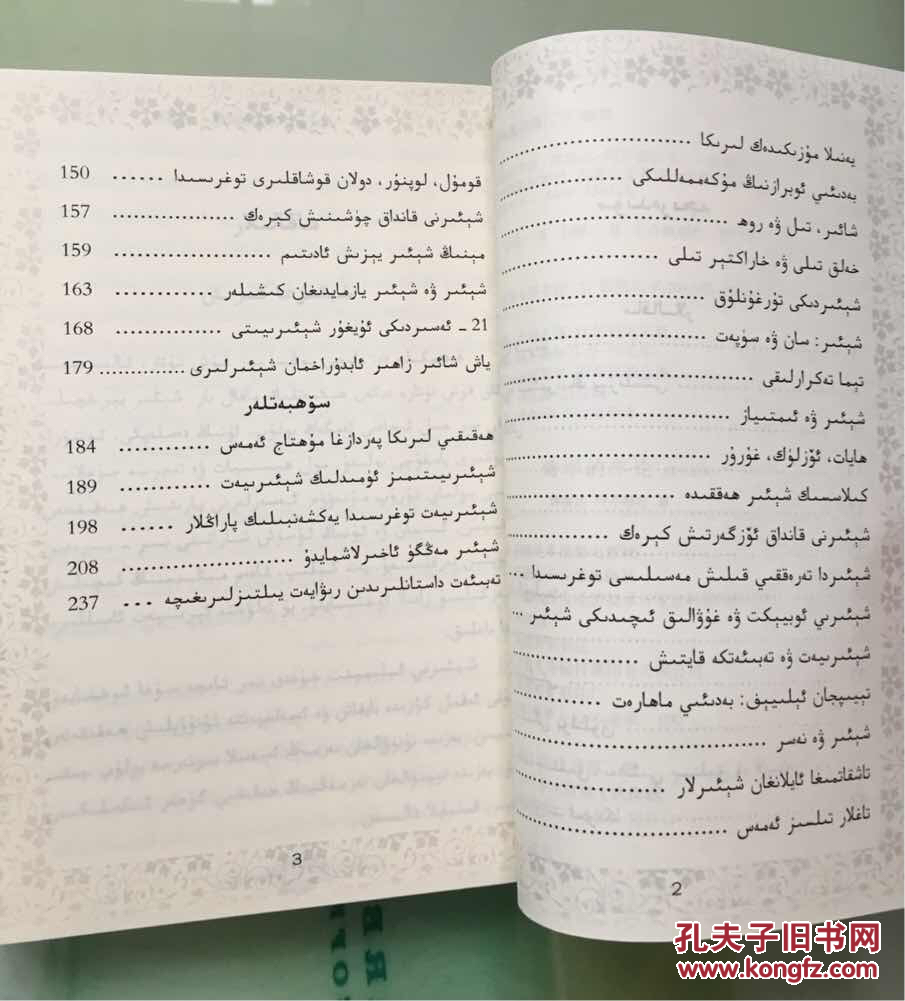 يەنىلا مۇزىكىدەك لىرىكا ..........................
بەدىئىي ئوبرازنىڭ مۇكەممەللىكى ..................
شائىر، تىل ۋە روھ ..............................
خەلق تىلى ۋە خاراكتېر تىلى ......................
شېئىردىكى تۇرغۇنلۇق ............................
شېئىر: سان ۋە سۈپەت ............................
تېما تەكرارلىقى .................................
شېئىر ۋە ئىمتىياز ................................
ھايات، ئۆزلۈك، غۇرۇر ............................
كىلاسسىك شېئىر ھەققىدە ........................
شېئىرنى قانداق ئۆزگەرتىش كېرەك ................
شېئىردا تەرەققىي قىلىش مەسىلىسى توغرىسىدا ...
شېئىرىي ئوبيېكت ۋە غۇۋالىق ئىچىدىكى شېئىر ...
شېئىرىيەت ۋە تەبىئەتكە قايتىش ..................
تېيىپجان ئېلىيېف: بەدىئىي ماھارەت ............
شېئىر ۋە نەسر ..................................
تاشقاتمىغا ئايلانغان شېئىرلار ....................
تاغلار تىلسىز ئەمەس ............................
2
قومۇل، لوپنۇر، دولان قوشاقلىرى توغرىسىدا ...... 150
شېئىرنى قانداق چۈشىنىش كېرەك ................ 157
مېنىڭ شېئىر يېزىش ئادىتىم .................... 159
شېئىر ۋە شېئىر يازمايدىغان كىشىلەر ............ 163
21 ـ ئەسىردىكى ئۇيغۇر شېئىرىيىتى ............... 168
ياش شائىر زاھىر ئابدۇراخمان شېئىرلىرى ............ 179
سۆھبەتلەر
ھەقىقىي لىرىكا پەردازغا مۇھتاج ئەمەس ............ 184
شېئىرىيىتىمىز ئۈمىدلىك شېئىرىيەت ............ 189
شېئىرىيەت توغرىسىدا يەكشەنبىلىك پاراڭلار ...... 198
شېئىر مەڭگۈ ئاخىرلاشمايدۇ ...................... 208
تەبىئەت داستانلىرىدىن رىۋايەت يىلتىزلىرىغىچە ... 237
3
孔夫子旧书网
www.kongfz.com